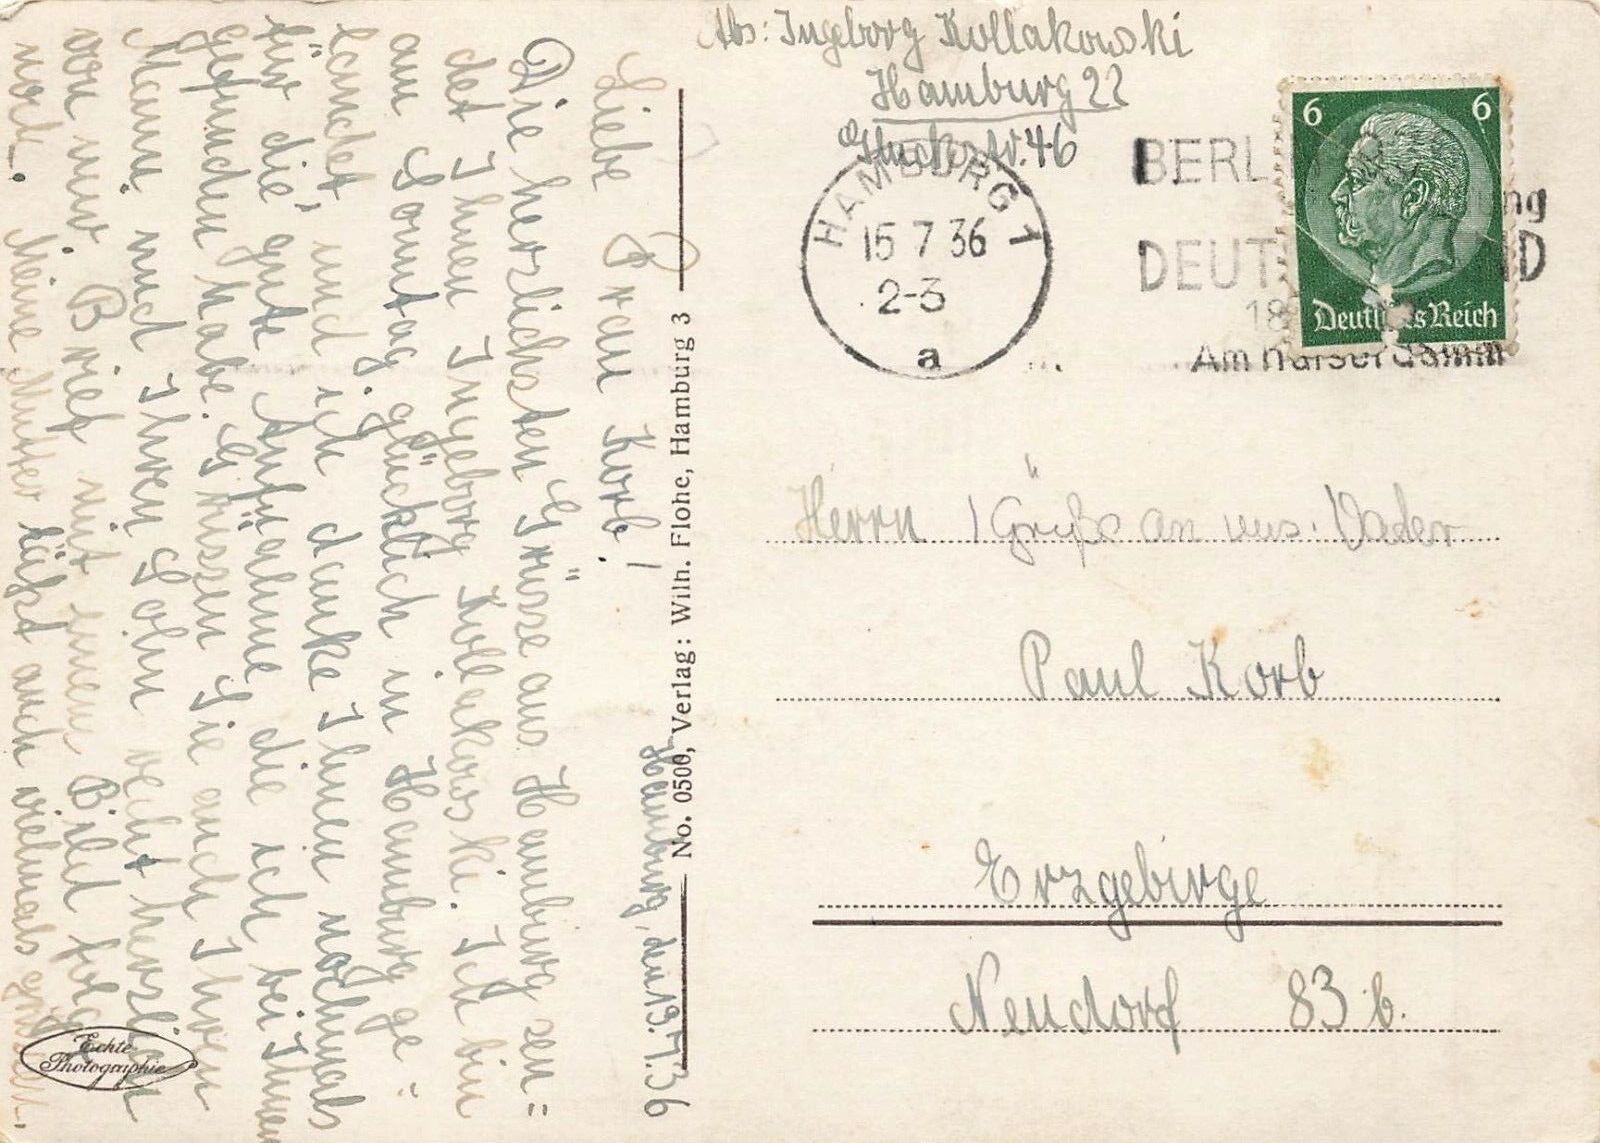 Abs: Ingeborg Kollakowski
Hamburg 22
46
HAMBURG 1
15 7 36
2-3
a
BERL
ng
DEUT ND
18
Am Kaiserdamm
6 6
Deutsches Reich
Herrn / Grüße an uns. Vader
Paul Korb
Erzgebirge
Neudorf 83 b.
No. 0500, Verlag: Wilh. Flohe, Hamburg 3
Hamburg, den 19.7.36
Liebe Frau Korb!
Die herzlichsten Grüsse aus Hamburg sen=
det Ihnen Ingeborg Kollakowski. Ich bin
am Sonntag glücklich in Hamburg ge=
landet, und ich danke Ihnen nochmals
für die gute Aufnahme, die ich bei Ihnen
gefunden habe. Grüssen Sie auch Ihren
Mann und Ihren Sohn recht herzlich
von mir. Brief mit einem Bild folgt
noch. Meine Mutter läßt auch vielmals grüssen.
Echte
Photographie